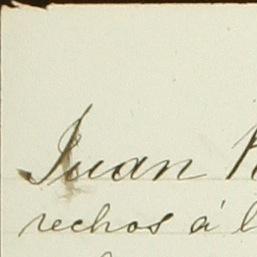 Juan
rechos á l